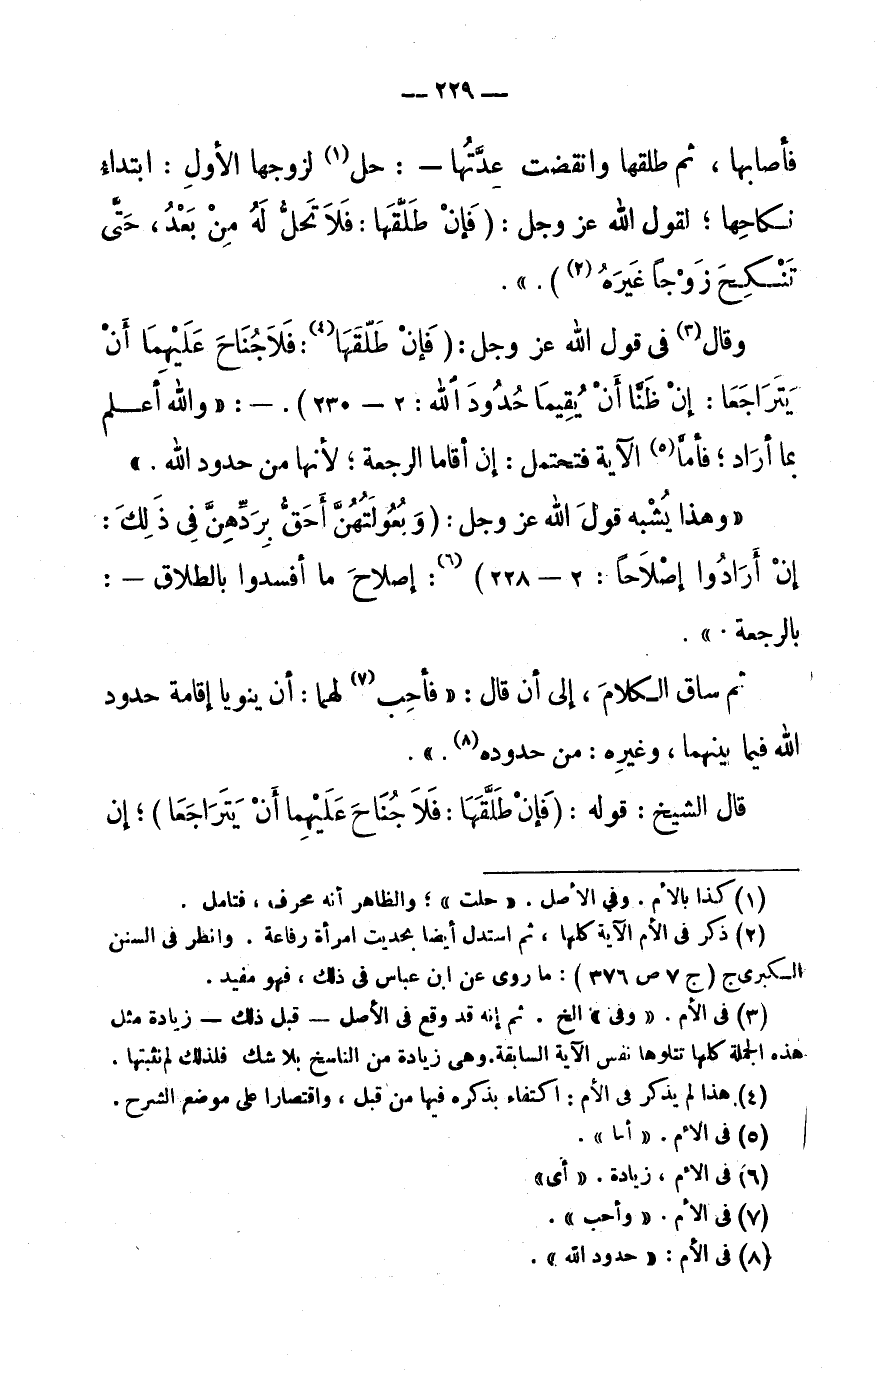 — ٢٢٩ —
فأصابها ، ثم طلقها وانقضت عِدَّتُها — : حل(١) لزوجها الأولِ : ابتداءُ
نكاحِها ؛ لقول الله عز وجل : ( فَإِنْ طَلَّقَهَا : فَلاَ تَحِلُّ لَهُ مِنْ بَعْدُ ، حَتَّى
تَنْكِحَ زَوْجاً غَيْرَهُ(٢) ) . » .
وقال(٣) فى قول الله عز وجل : ( فَإِنْ طَلَّقَهَا(٤) : فَلاَجُنَاحَ عَلَيْهِمَا أَنْ
يَتَرَاجَعَا : إِنْ ظَنَّا أَنْ يُقِيمَا حُدُودَ ٱللهِ : ٢ — ٢٣٠ ) . — : « والله أعلم
بما أراد ؛ فأمَّا(٥) الآية فتحتمل : إن أقاما الرجعة ؛ لأنها من حدود الله . »
« وهذا يُشْبه قولَ الله عز وجل : ( وَبُعُولَتُهُنَّ أَحَقُّ بِرَدِّهِنَّ فِي ذَلِكَ :
إِنْ أَرَادُوا إِصْلاَحاً : ٢ — ٢٢٨ ) (٦) : إصلاحَ ما أفسدوا بالطلاق — :
بالرجعة . » .
ثم ساق الكلامَ ، إلى أن قال : « فأحِب(٧) لهما : أن ينويا إقامة حدود
الله فيما بينهما ، وغيرِه : من حدوده(٨) . » .
قال الشيخ : قوله : ( فَإِنْ طَلَّقَهَا : فَلاَ جُنَاحَ عَلَيْهِما أَنْ يَتَرَاجَعَا ) ؛ إن
(١) كذا بالأم . وفي الأصل . « حلت » ؛ والظاهر أنه محرف ، فتامل .
(٢) ذكر فى الأم الآية كلها ، ثم استدل أيضا بحديث امرأة رفاعة . وانظر فى السنن
الكبرىج ( ج ٧ ص ٣٧٦ ) : ما روى عن ابن عباس فى ذلك ، فهو مفيد .
(٣) فى الأم . « وفى » الخ . ثم إنه قد وقع فى الأصل — قبل ذلك — زيادة مثل
هذه الجملة كلها تتلوها نفس الآية السابقة.وهى زيادة من الناسخ بلا شك فلذلك لم نثبتها .
(٤) هذا لم يذكر فى الأم : اكتفاء بذكره فيها من قبل ، واقتصارا على موضع الشرح .
(٥) فى الأم . « أما » .
(٦) فى الأم ، زيادة . « أى»
(٧) فى الأم . « وأحب » .
(٨) فى الأم : « حدود الله » .